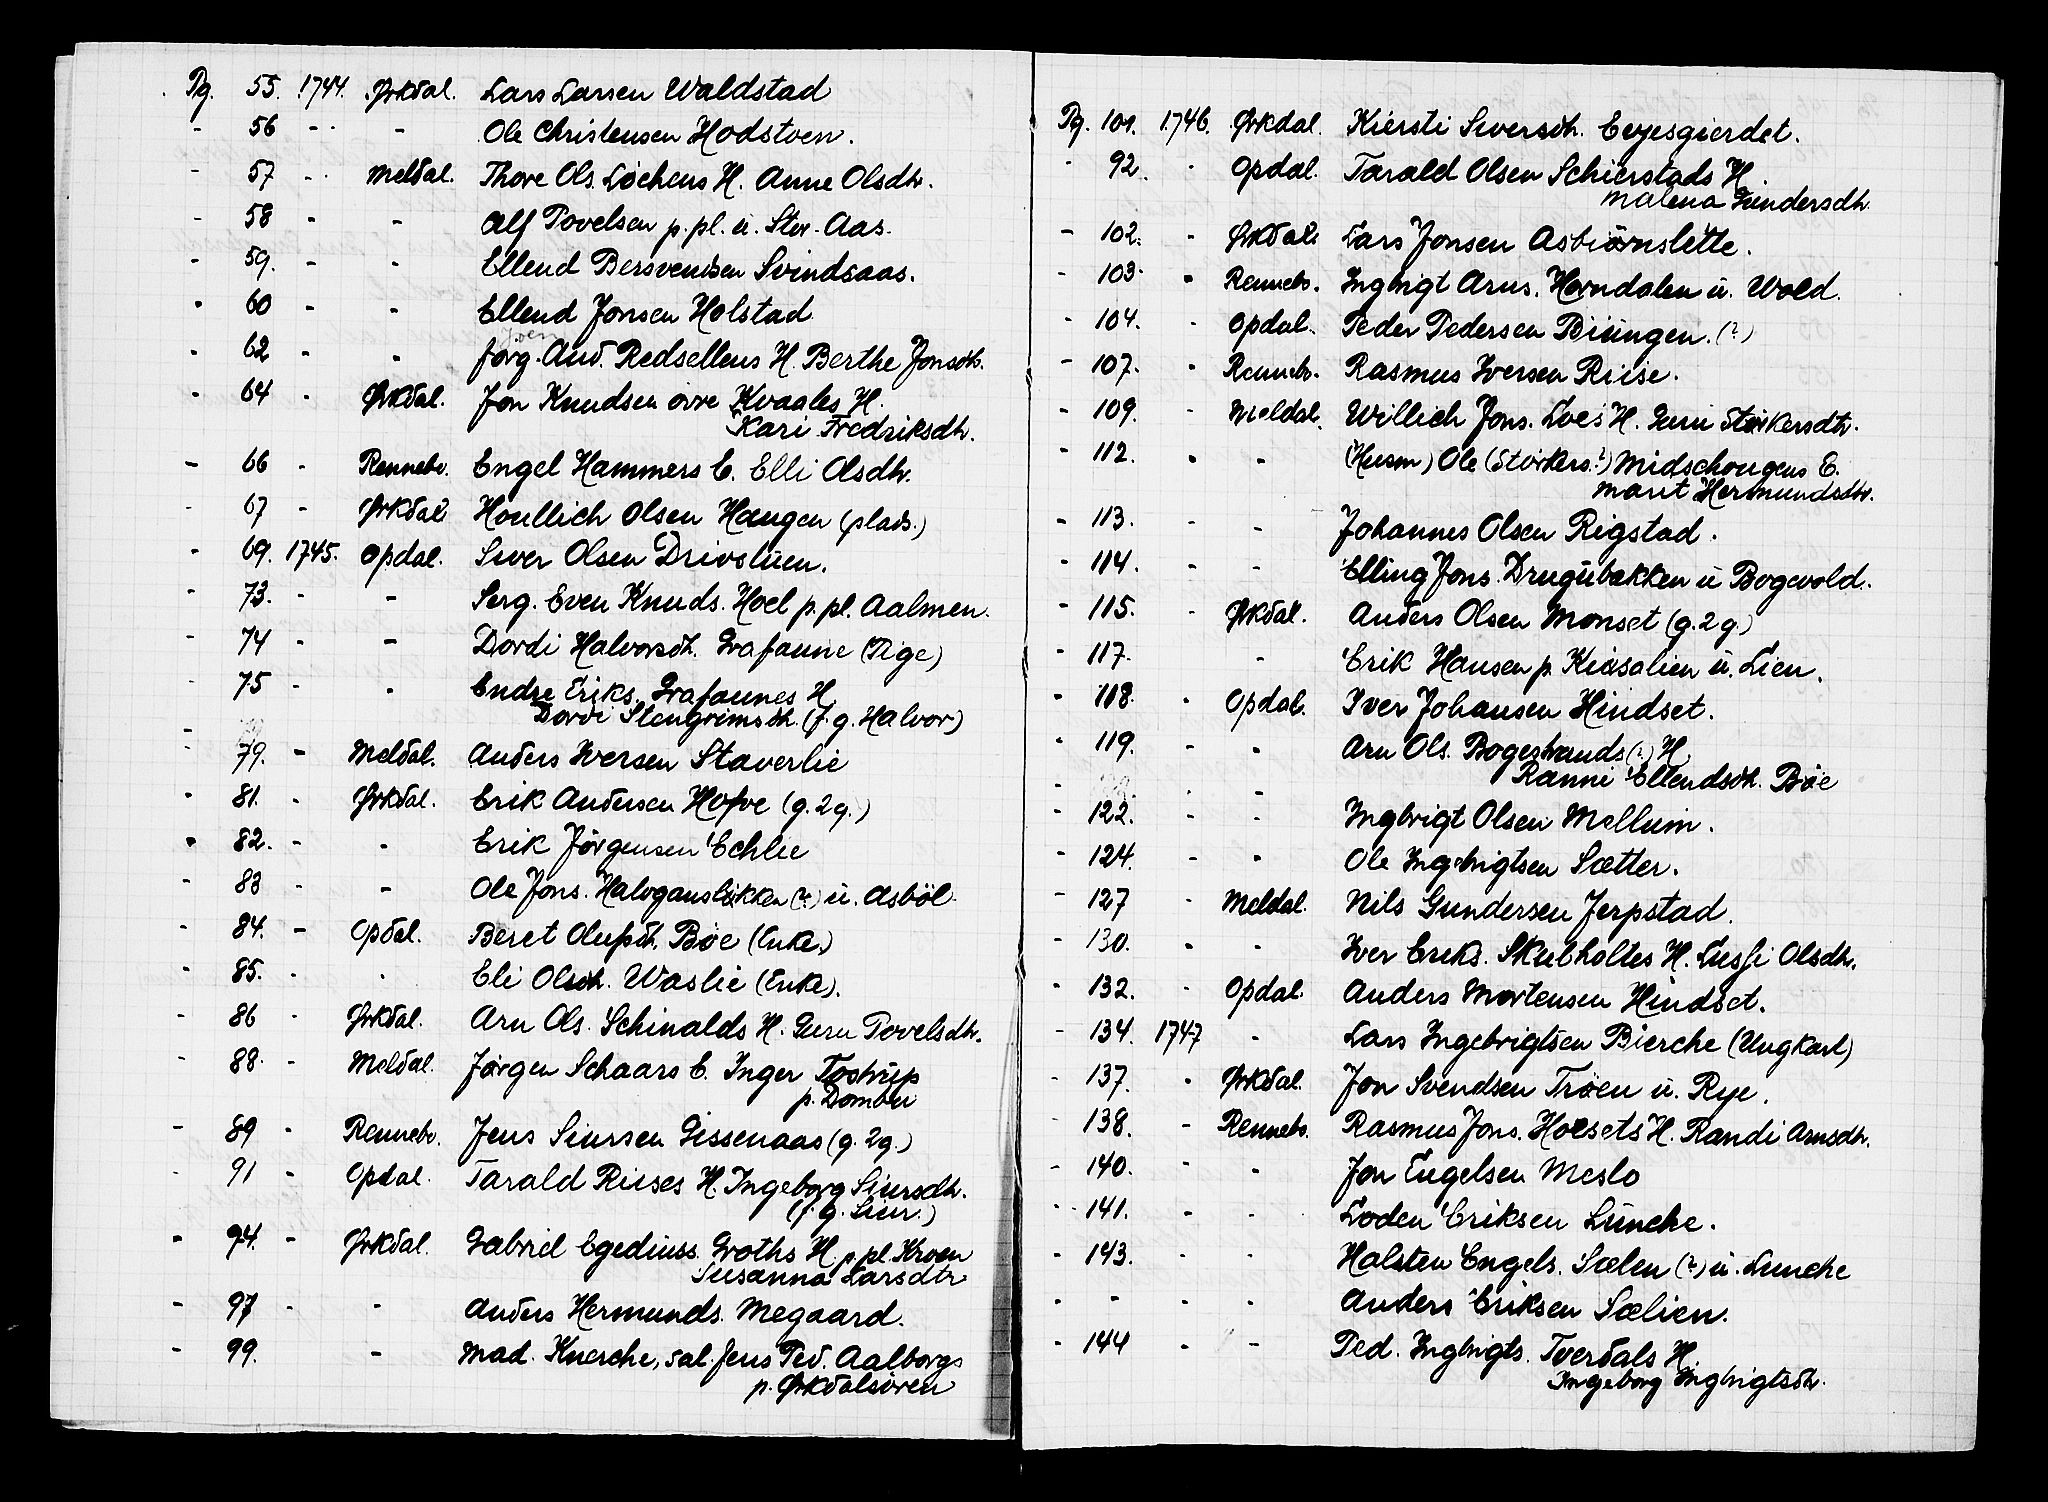 Pg. 55. 1744. Ørkdal. Lars Larsen Waldstad
- 56 - - Ole Christensen Hodstven.
- 57 - Meldal. Thore Ols. Løchens H. Anne Olsdtr.
- 58 - - Alf Povelsen p. pl. u. Stor-Aas.
- 59. - - Ellend Bersvendsen Svindsaas.
- 60 - - Ellend Jonsen Holstad
- 62 - - Jørg. And. Redsellens H. Berthe Jonsdtr.
- 64 - Ørkdal. Jon Knudsen øvre Kvaales H.
Kari Fredriksdtr.
- 66 - Rennebo. Engel Hammers E. Elli Olsdtr.
- 67 - Ørkdal Houllich Olsen Haugen (plads.)
- 69. 1745. Opdal. Siver Olsen Drivstuen.
- 73. - - Serg. Even Knuds. Hoel p. pl. Aalmen.
- 74 - Dordi Halvorsdtr. Grafaune (Pige)
- 75 - - Endre Eriks. Grafaunes H.
Dordi Stengrimsdtr. (f. g. Halvor)
- 79. - Meldal. Anders Iversen Staverlie
- 81. - Ørkdal. Erik Andersen Hofve (g. 2 g.)
- 82. - - Erik Jørgensen Echlie
- 83 - - Ole Jons. Halvganslikken (?) u. Asbøl.
- 84. - Opdal. Beret Olufsdtr. Bøe (Enke.)
- 85. - - Eli Olsdtr. Waslie (Enke).
- 86 - Ørkdal. Arn Ols. Schinalds H. Guru Povelsdtr.
- 88. - Meldal. Jørgen Schaars E. Inger Tostrup
p. Dombu
- 89 - Rennebo. Jens Siursen Gissenaas (g. 2 g.)
- 91 - Opdal. Tarald Riises H. Ingeborg Siursdtr.
(f. g. Siur.)
- 94. - Ørkdal. Gabriel Egediuss. Groths H. p. pl. Kroen
Susanna Larsdtr
- 97 - - Anders Hermunds. Megaard.
- 99. - Mad. Knerche, sal. Jens Ped. Aalborgs
p. Ørkdalsøren
Pg. 101. 1746. Ørkdal. Kiersti Siversdtr. Eyesgierdet.
- 92. - Opdal. Tarald Olsen Schierstads H.
Malena Gundersdtr.
- 102. - Ørkdal. Lars Jonsen Asbiørnslette.
- 103. - Rennebo. Ingbrigt Arns. Horndalen u. Wold.
- 104. - Opdal. Peder Pedersen Biüngen. (?)
- 107. - Rennebo. Rasmus Iversen Riise.
- 109. - Meldal. Willich Jons. Loes H. Guru Størkersdtr.
- 112. - - (Husm) Ole (Størkers.?) Midschougens E.
Marit Hermundsdtr.
- 113. - - Johannes Olsen Rigstad.
- 114. - - Elling Jons. Drugubakken u Bogevold.
- 115. - Ørkdal. Anders Olsen Monset (g. 2 g.)
- 117. - Erik Hansen p. Kiøsalien u. Lien.
- 118. - Opdal. Iver Johansen Hindset.
- 119. - - Arn Ols. Bogestrands (?) H.
Ranni Ellendsdtr. Bøe
- 122. - - Ingbrigt Olsen Mellum.
- 124. - - Ole Ingebrigtsen Sætter.
- 127 - Meldal. Nils Gundersen Jerpstad.
- 130. - - Iver Eriks. Skulholtes H. Lussi Olsdtr.
- 132. - Opdal. Anders Mortensen Hindset.
- 134. 1747 - Lars Ingebrigtsen Bierche (Ungkarl)
- 137. - Ørkdal. Jon Svendsen Trøen u. Rye.
- 138. - Rennebo. Rasmus Jons. Hoesets H. Randi Arnsdtr.
- 140. - - Jon Engelsen Meslo
- 141. - - Loden Eriksen Lunche.
- 143. - - Halsten Engels. Sælen (?) u. Lunche
- - - - Anders Eriksen Sælien.
- 144 - - Ped. Ingbrigts. Tverdals H.
Ingeborg Ingbrigtsdtr.